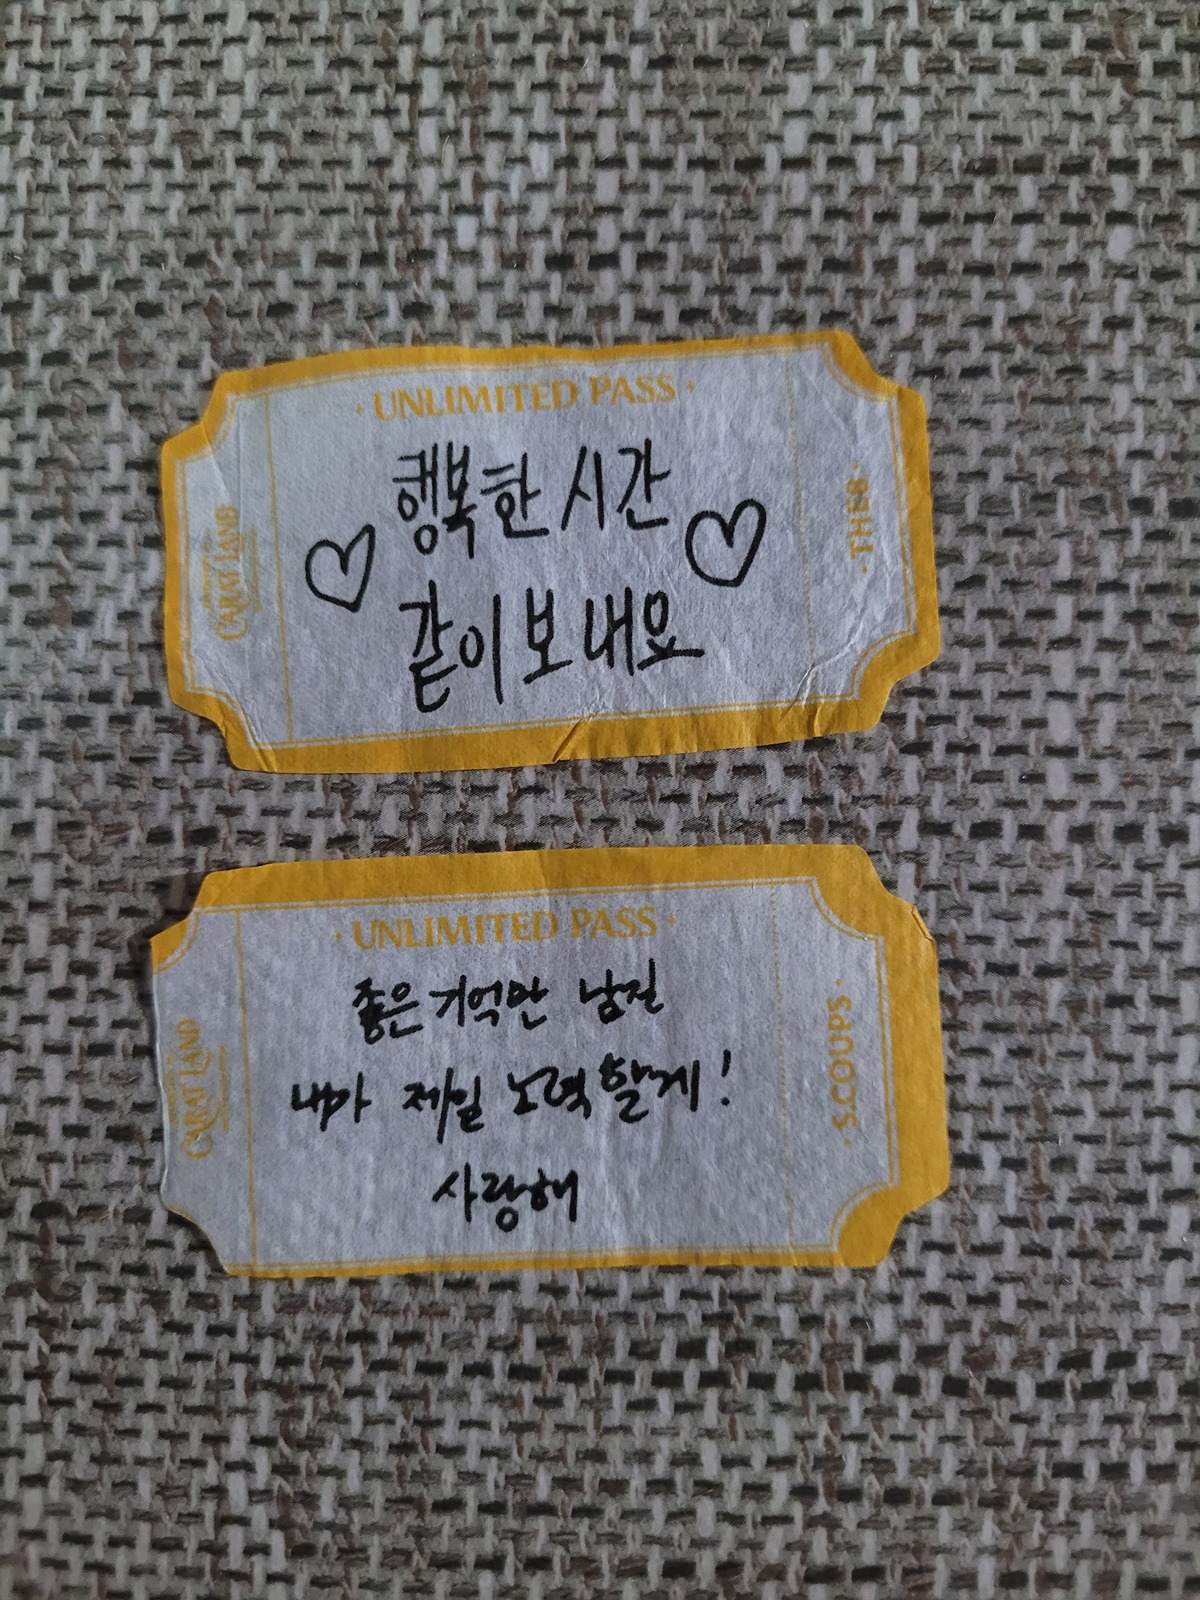 · UNLIMITED PASS ·
행복한 시간
같이 보내요
CARAT LAND
· THE8 ·
· UNLIMITED PASS ·
좋은 기억만 남길
내가 제일 노력할게!
사랑해
CARAT LAND
· S.COUPS ·